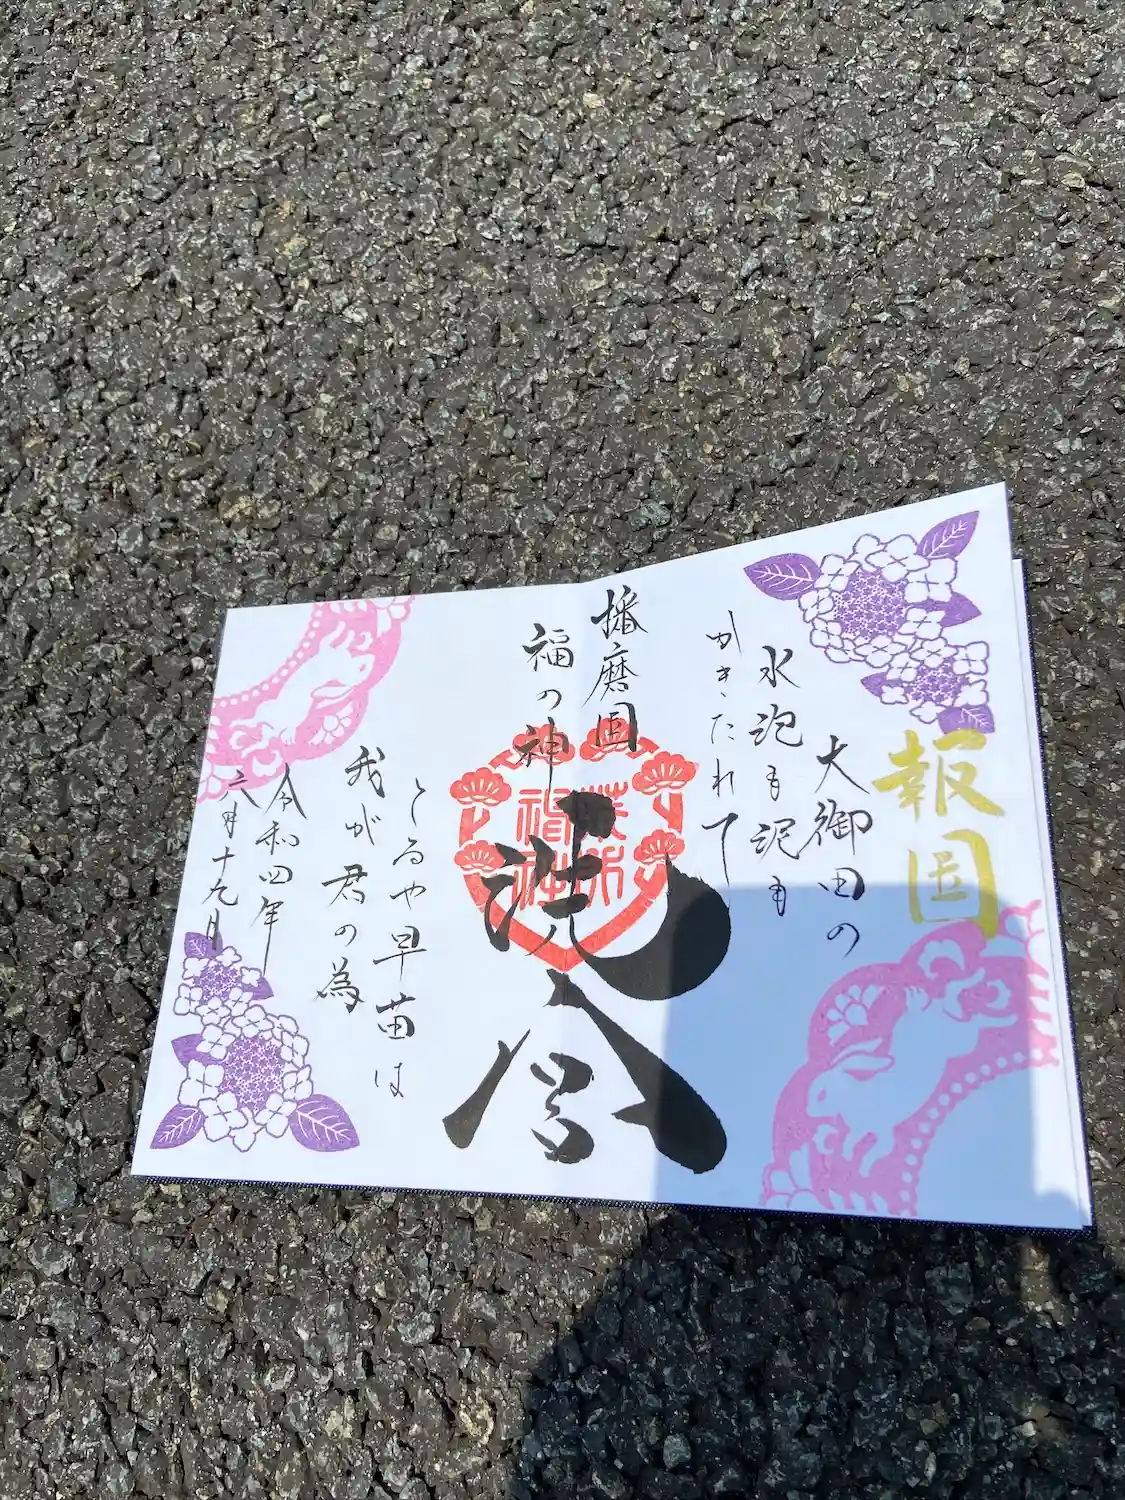 報国
大御田の
水泡も泥も
かきたれて
播磨国
福の神
とるや早苗は
我が君の為
令和四年
六月十九日